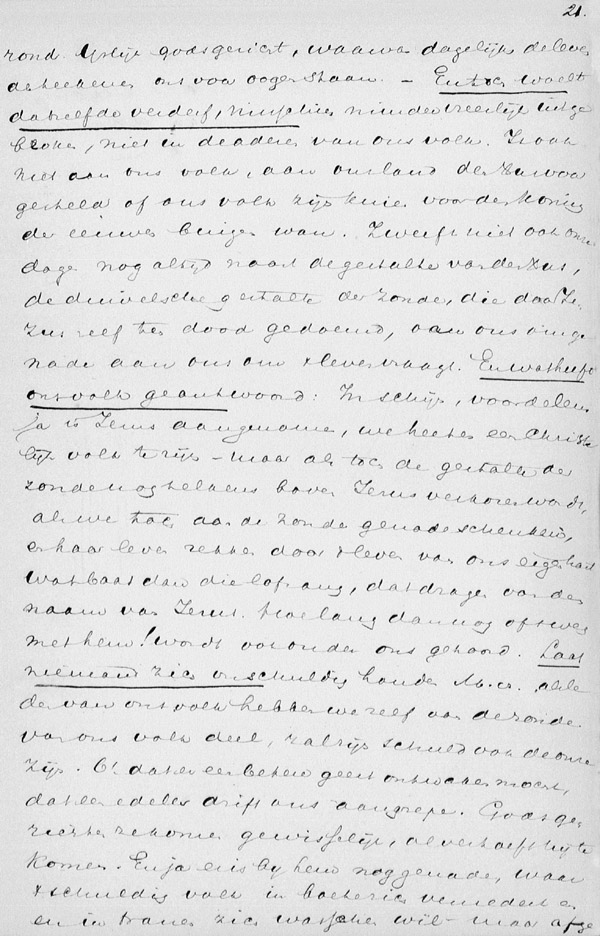 21.
rond. Ijslijk godsgericht, waarvan dagelijks de leven
de teekenen ons voor oogen staan. — En toch woelt
datzelfde verderf, misschien minder vreeselijk uitge
broken, niet in de aderen van ons volk. Is ook
niet aan ons volk, aan ons land de keus voor
gesteld of ons volk zijn knie voor den Koning
der eeuwen buigen wou. Zweeft niet ook onze
dagen nog altijd naast de gestalte van Jezus,
de duivelsche gestalte der zonde, die door Je-
zus zelf ten dood gedoemd, van ons om ge
nade aan ons om 't leven vraagt. En wat heeft
ons volk geantwoord: In schijn, voor de leus
ja is Jezus aangenomen, we heeten een Christe
lijk volk te zijn — maar als toch de gestalte der
zonde nog telkens boven Jezus verkoren wordt,
als we toch aan de zonde genade schenken,
en haar leven rekken door 't leven van ons eigen hart
wat baat dan die lofzang, dat dragen van den
naam van Jezus. Hoe lang dan nog of 't weg
met hem! wordt ook onder ons gehoord. Laat
niemand zich onschuldig houden M. H. als le
den van ons volk hebben we zelf aan de zonde
van ons volk deel, zal zijn schuld ook de onze
zijn. O! dat er een betere geest ontwaken mocht,
dat een edele drift ons aangrepe. Gods ge
richten ze komen gewisselijk, al verhoeft hij te
komen. En ja er is bij hem nog genade, waar
't schuldig volk in boete zich vernedert en
en in tranen zich wasschen wil — maar afge